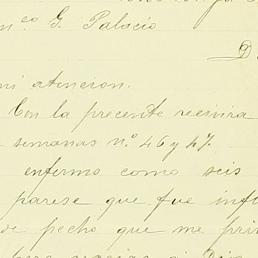 nco G. Palacio
D
mi atencion.
Con la presente recivira
semanas nº 46 y 47.
enfermo como seis
parese que fue infl
de pecho que me pri